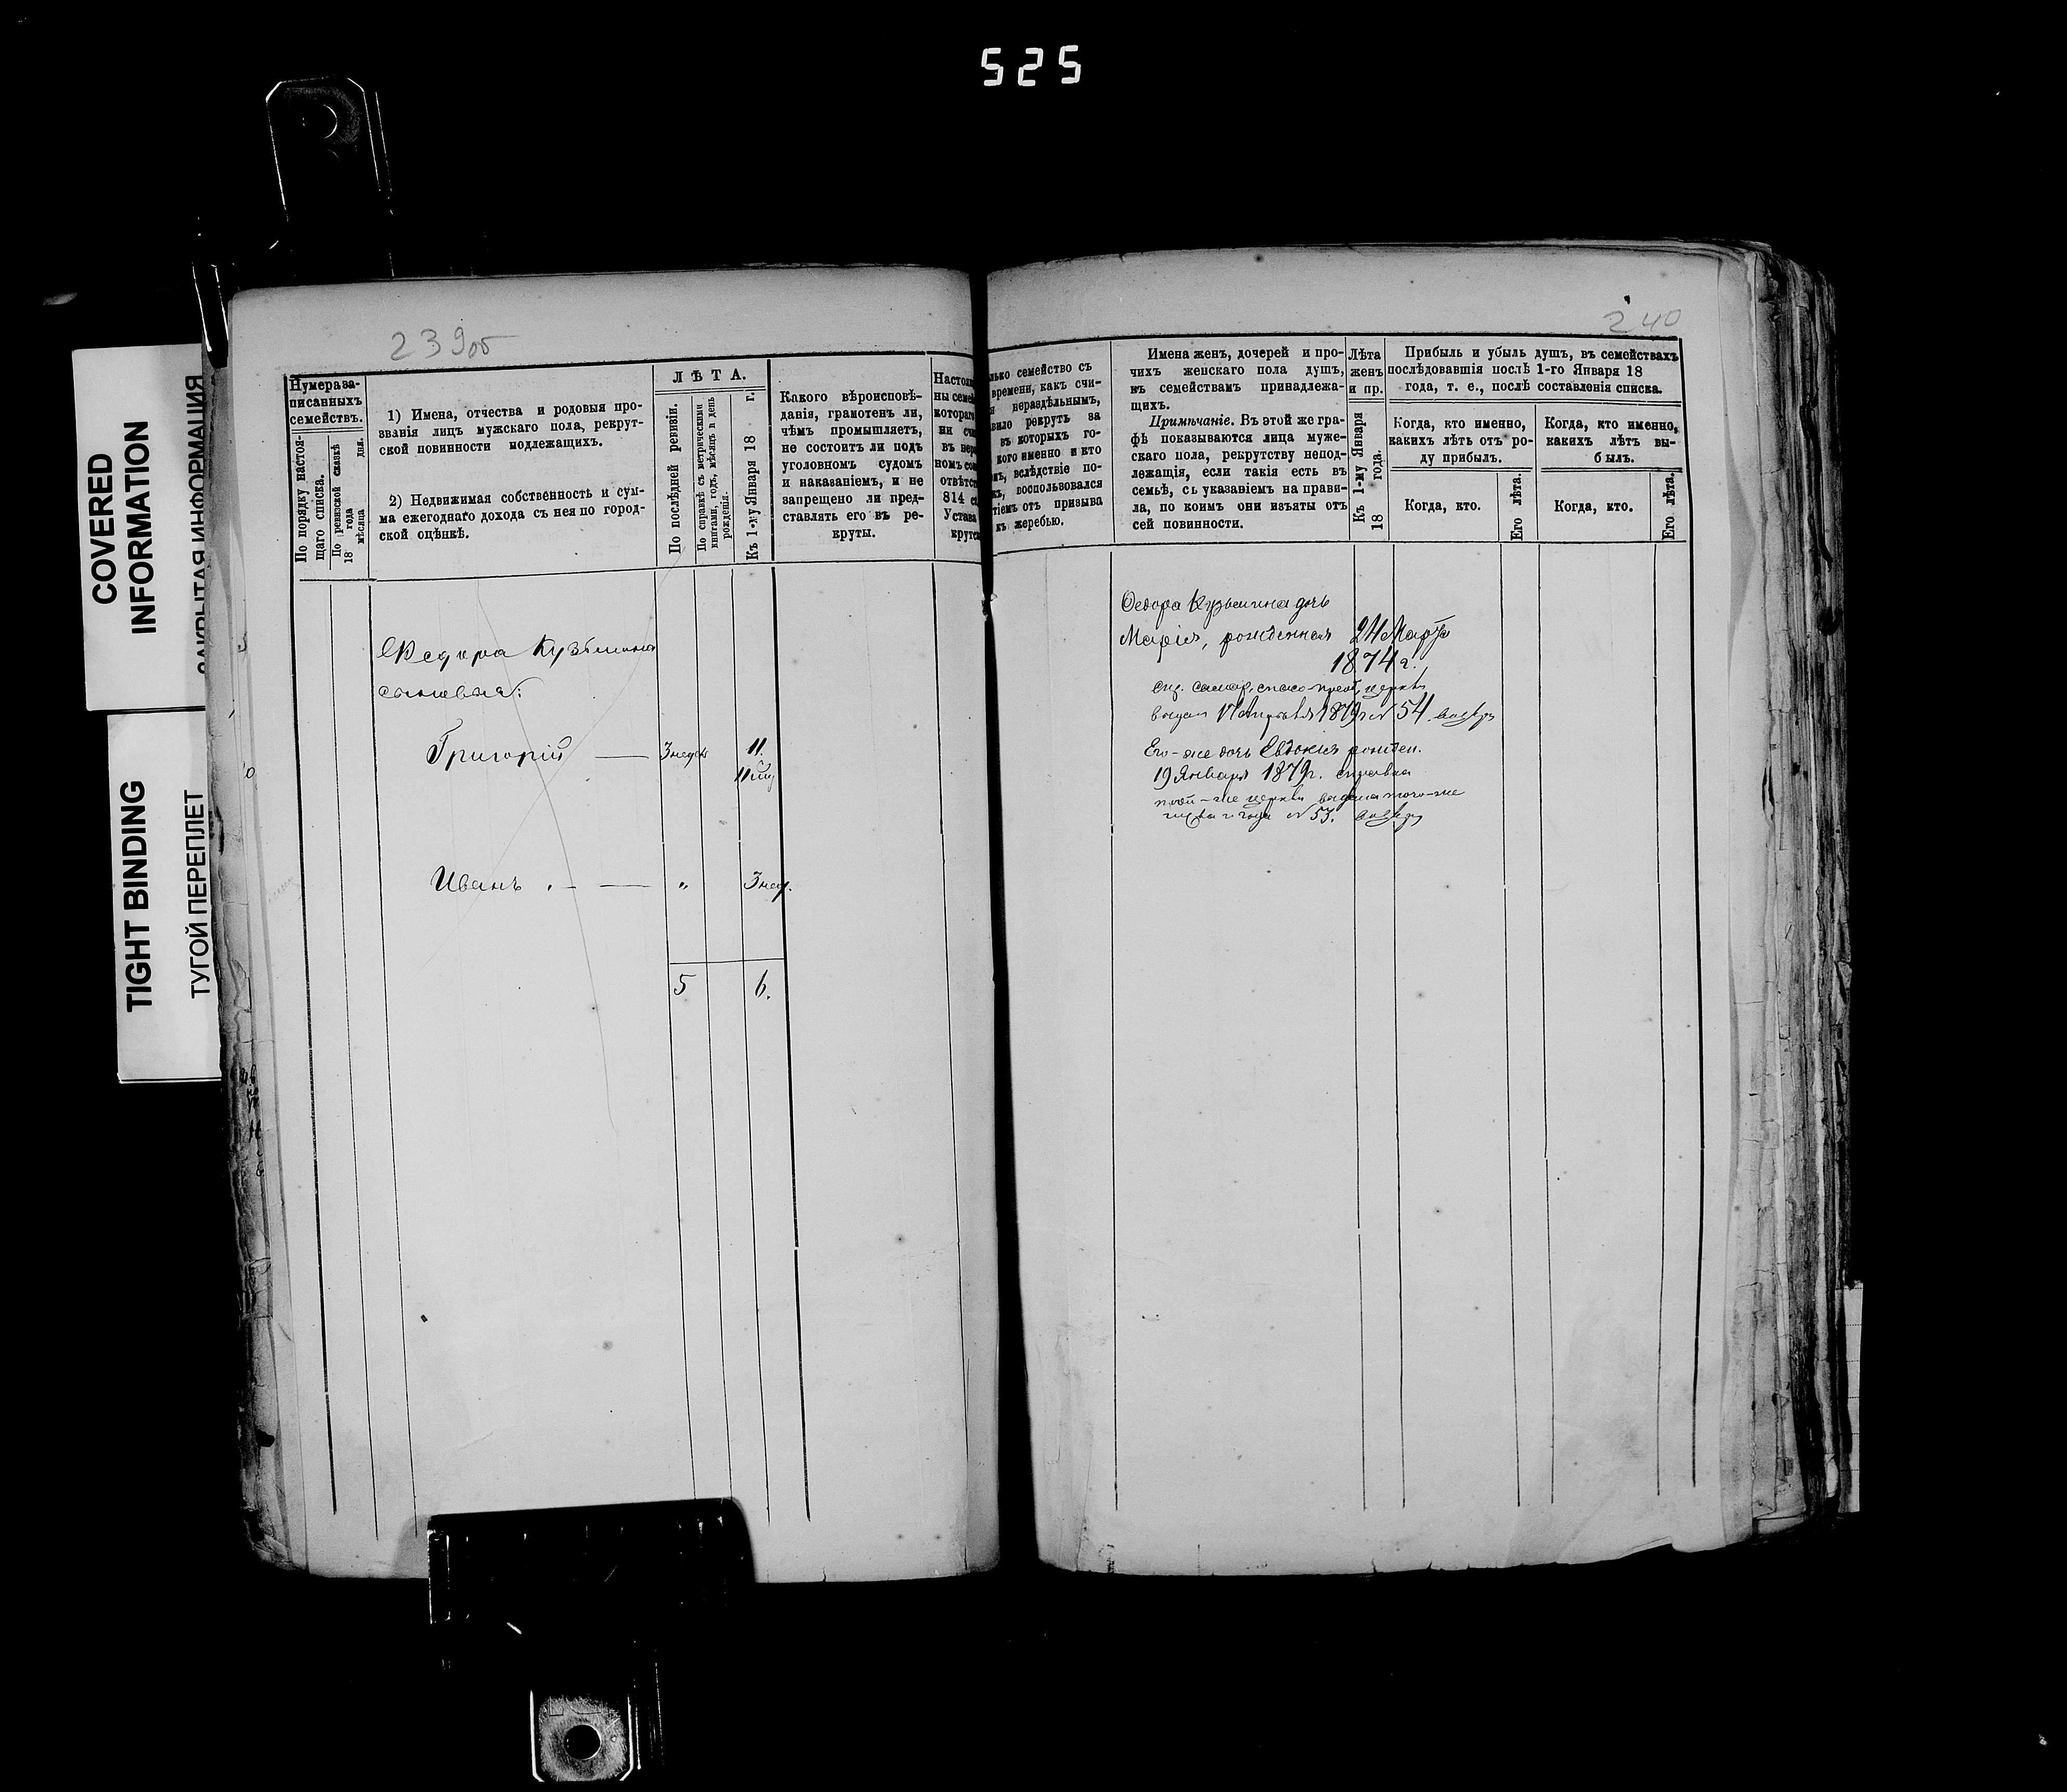 525
COVERED
INFORMATION
ЗАКРЫТАЯ ИНФОРМАЦИЯ
TIGHT BINDING
ТУГОЙ ПЕРЕПЛЕТ
239об
Нумера за-
писанныхъ
семействъ.
По порядку настоя-
щаго списка.
По ревизской сказкѣ
18 года
мѣсяца дня.
1) Имена, отчества и родовыя про-
званія лицъ мужскаго пола, рекрут-
ской повинности подлежащихъ.
2) Недвижимая собственность и сум-
ма ежегоднаго дохода съ нея по город-
ской оцѣнкѣ.
ЛѢТА.
По послѣдней ревизіи.
По справкѣ съ метрическими
книгами, годъ, мѣсяцъ и день
рожденія.
Къ 1-му Января 18 г.
Какого вѣроисповѣ-
данія, грамотенъ ли,
чѣмъ промышляетъ,
не состоитъ ли подъ
уголовномъ судомъ
и наказаніемъ, и не
запрещено ли пред-
ставлять его въ ре-
круты.
Настоя
ны семе
котораго
ни
въ
номъ
отвѣтс
814 с
Устава
крутс
Ѳедора Кузьмина
сыновья:
Григорій — 3 недѣл 11.
Иванъ „ — — „ 3 нед.
5 6.
240
лько семейство съ
времени, какъ счи-
нераздѣльнымъ,
рекрутъ за
въ которыхъ го-
кого именно и кто
вслѣдствіе по-
воспользовался
отъ призыва
къ жеребью.
Имена женъ, дочерей и про-
чихъ женскаго пола душъ,
къ семействамъ принадлежа-
щихъ.
Примѣчаніе. Въ этой же гра-
фѣ показываются лица муже-
скаго пола, рекрутству непод-
лежащія, если такія есть въ
семьѣ, съ указаніемъ на прави-
ла, по коимъ они изъяты отъ
сей повинности.
Лѣта
женъ
и пр.
Къ 1-му Января
18 года.
Прибыль и убыль душъ, въ семействахъ
послѣдовавшія послѣ 1-го Января 18
года, т. е., послѣ составленія списка.
Когда, кто именно,
какихъ лѣтъ отъ ро-
ду прибылъ.
Когда, кто именно,
какихъ лѣтъ вы-
былъ.
Когда, кто.
Его лѣта.
Когда, кто.
Его лѣта.
Ѳедора Кузьмина дочь
Марія, рожденная 24 Марта
1874 г.
церкви
1879 г. № 54.
Его-же дочь Евдокія рожден.
19 Января 1879 г. справка
той-же церкви того-же
№ 53.